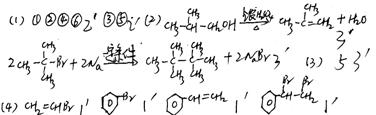 (1) ①②④⑥ 2' ③⑤ 2' (2) CH₃-CH(CH₃)-CH₂OH →(浓H₂SO₄, △) CH₃-C(CH₃)=CH₂ + H₂O 3'
2CH₃-C(CH₃)(CH₃)-Br + 2Na → CH₃-C(CH₃)(CH₃)-C(CH₃)(CH₃)-CH₃ + 2NaBr 3' (3) 5 3'
(4) CH₂=CHBr 1' ⌬-Br 1' ⌬-CH=CH₂ 1' ⌬-CHBr-CH₂Br 1'